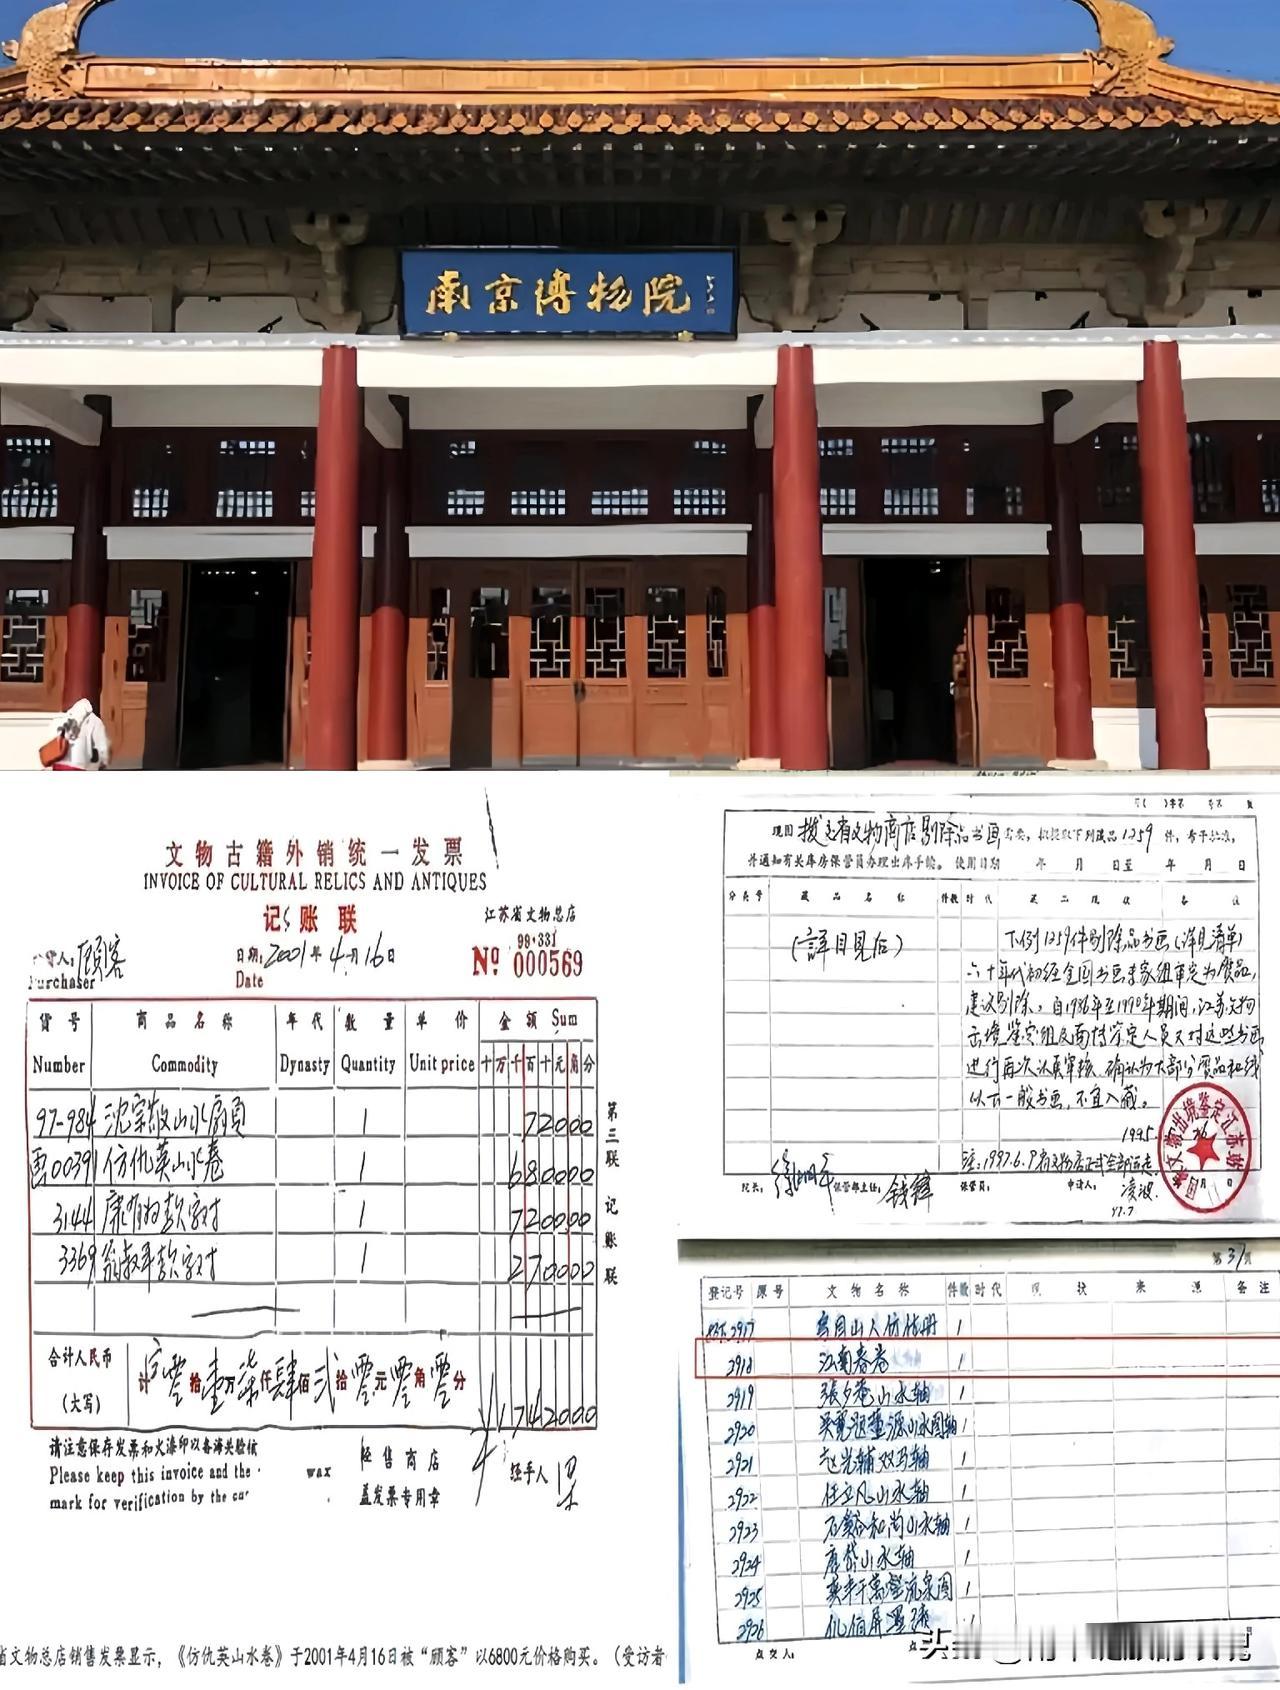 南京博物院
文物古籍外销统一发票
INVOICE OF CULTURAL RELICS AND ANTIQUES
记账联
江苏省文物总店
98·331
顾客
Purchaser
日期: 2001年4月16日
Date
№ 000569
货号 商品名称 年代 数量 单价 金额 Sum
Number Commodity Dynasty Quantity Unit price 十万千百十元角分
97-984 沈宗敬山水扇页 1 72000
0039 仿仇英山水卷 1 680000
3144 康有为款字对 1 720000
3369 翁叔平款字对 1 270000
第三联 记账联
合计人民币
(大写)
计 零拾壹万柒仟肆佰贰拾零元零角零分
¥1742000
请注意保存发票和火漆印以备海关验核
Please keep this invoice and the
wax
mark for verification by the
经售商店
盖发票专用章
经手人
省文物总店销售发票显示，《仿仇英山水卷》于2001年4月16日被“顾客”以6800元价格购买。（受访者
现因 拨交省文物商店剔除品书画 需要，拟提取下列藏品1259件，希予批准，
并通知有关库房保管员办理出库手续。使用日期 年 月 日至 年 月 日
分类号 藏品名称 件数 时代 藏品现状 备注
(详目见后)
下列1259件剔除品书画(详见清单)
六十年代初经全国书画专家组审定为赝品，
建议剔除，自1986年至1990年期间，江苏文物
出境鉴定组及南博鉴定人员又对这些书画
进行再次认真审核，确认为大部分赝品和线
以下一般书画，不宜入藏。
1995.
注：1997.6.9省文物店正式全部运走
院长： 徐湖平 保管部主任： 钱锋 保管员： 申请人： 凌波
97.7
月 日
国家文物出境鉴定江苏站
第37页
登记号 原号 文物名称 件数 时代 现状 来源 备注
2917 1
2918 江南春卷 1
2919 张夕庵山水轴 1
2920 1
2921 赵光辅双马轴 1
2922 任立凡山水轴 1
2923 石谿和尚山水轴 1
2924 唐岱山水轴 1
2925 1
2926 1
点交人：